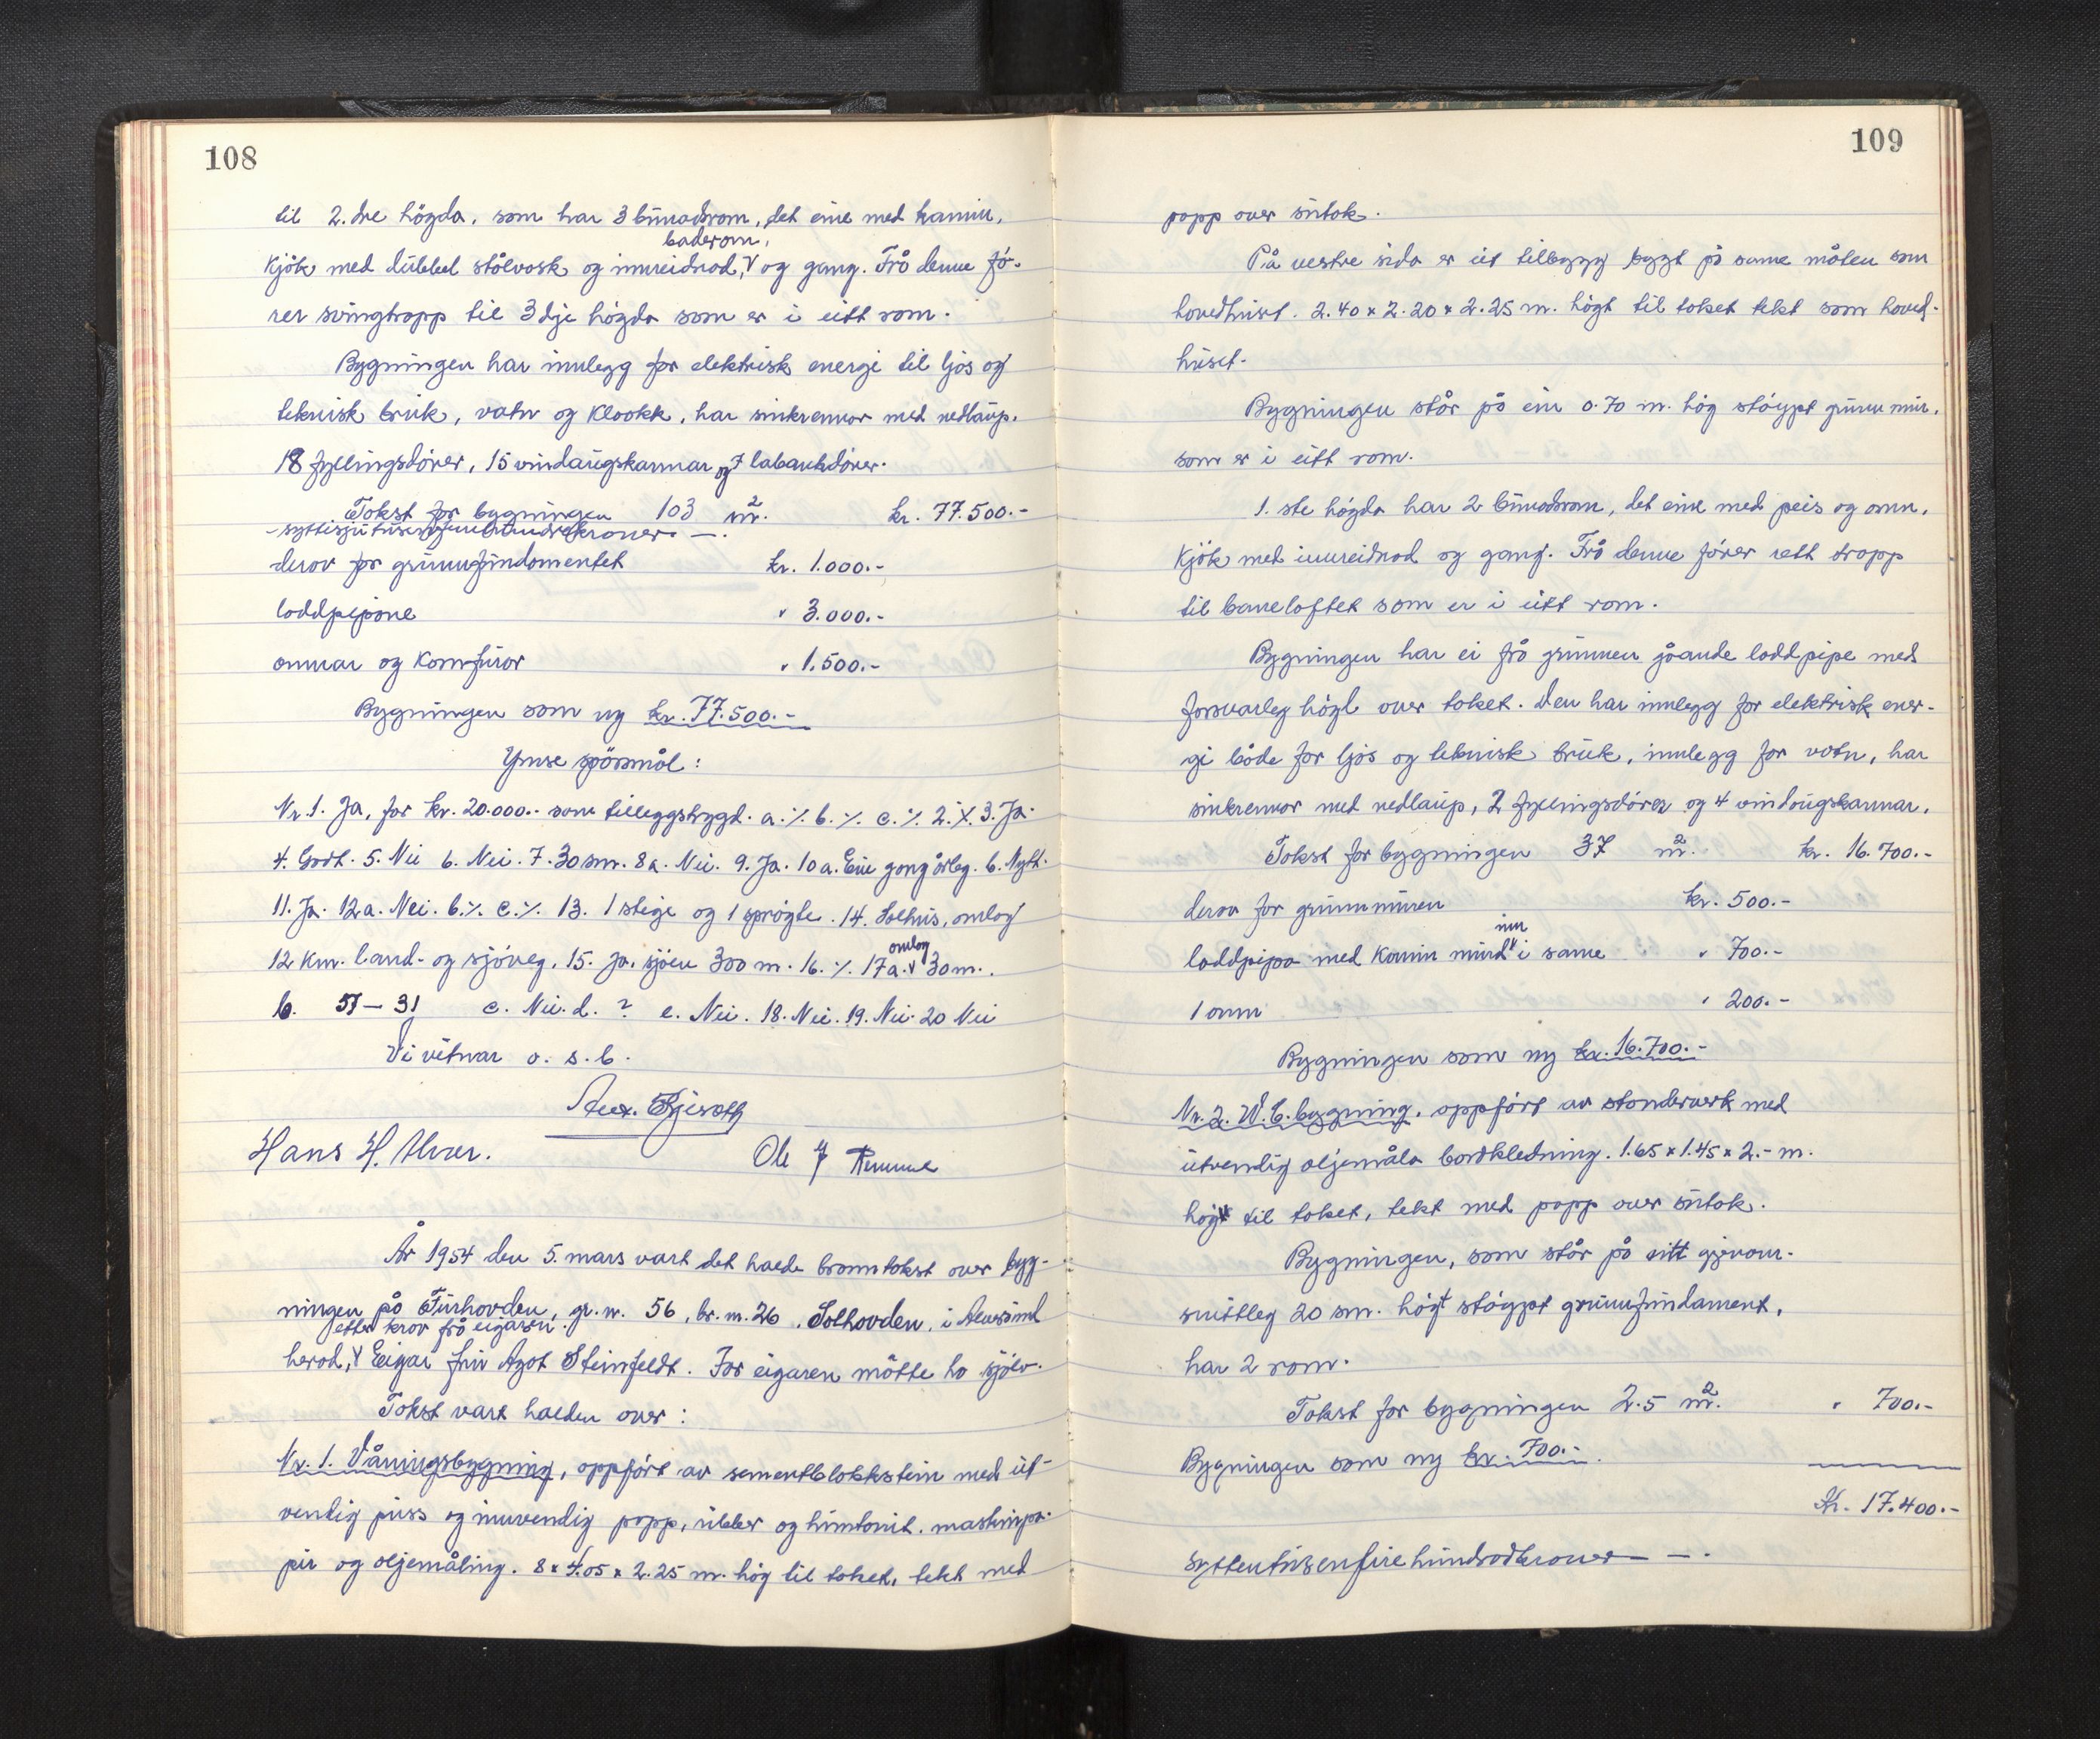 108
til 2.dre högda, som har 3 bünadsrom, det eine med kamin,
baderom,
kjök med dübbel stålvask og innreidnad, V og gang. Frå denne fö-
rer svingtrapp til 3dje högda som er i eitt rom.
Bygningen har innlegg for elektrisk energi til ljos og
teknisk brük, vatn og kloakk, har sinkrennor med nedlaup.
18 fyllingsdörer, 15 vindaugskarmar og 7 labankdörer.
Takst for bygningen 103 m². kr. 77.500.-
- syttisjütüsenfemhündrekroner. -.
derav for grunnfündamentet kr. 1.000.-
loddpipone " 3.000.-
omnar og komfüror " 1.500.-
Bygningen som ny kr. 77.500.-
Ymse spörsmål:
Nr. 1. Ja, for kr. 20.000.- som tilleggstrygd. a. ٪. b. ٪. c. ٪. 2. ٪. 3. Ja.
4. Godt. 5. Nei 6. Nei. 7. 30 sm. 8 a. Nei. 9. Ja. 10 a. Ein gong årleg. b. Nytt.
11. Ja. 12 a. Nei. b. ٪. c. ٪. 13. 1 stige og 1 sprögte. 14. Solhüs, omlag
omlag
12 km. land- og sjöveg. 15. Ja, sjöen 300 m. 16. ٪. 17 a. V 30 m..
b. 5T - 3J c. Nei. d. ? e. Nei. 18. Nei. 19. Nei. 20 Nei
Vi vitnar o. s. b.
Hans H. Alver. Ole J
År 1954 den 5. mars vart det halde branntakst over byg-
ningen på Fürhovden, gr. nr. 56, br. nr. 26, Solhovden, i Alversünd
etter krav frå eigaren.
herad, V Eigar frü Agot Steinfeldt. For eigaren mötte ho sjölv.
Takst vart halden over:
Nr. 1. Våningsbygning, oppfört av sementblokkstein med üt-
vendig püss og innvendig papp, übber og hüntonit, maskinpa-
pir og oljemåling. 8 x 4.05 x 2.25 m. hög til taket, tekt med
109
papp over sütak.
På vestre sida er eit tilbygg bygt på same måten som
hovedhüset. 2.40 x 2.20 x 2.25 m. högt til taket tekt som hoved-
hüset.
Bygningen står på ein 0.70 m. hög stöypt grunnmür,
som er i eitt rom.
1. ste högda har 2 bünadsrom, det eine med peis og omn,
kjök med innreidnad og gang. Frå denne förer rett trapp
til bareloftet som er i eitt rom.
Bygningen har ei frå grünnen gåande loddpipe med
forsvarleg högd over taket. Den har innlegg for elektrisk ener-
gi både for ljos og teknisk brük, innlegg for vatn, har
sinkrennor med nedlaup, 2 fyllingsdörer og 4 vindaugskarmar.
Takst for bygningen 37 m². kr. 16.700.-
derav for grunnmüren kr. 500.-
inn
loddpipa med kamin mürd V i same " 700.-
1 omn " 200.-
Bygningen som ny kr. 16.700.-
Nr. 2. W.C. bygning, oppfört av standerverk med
ütvendig oljemåla bordkledning. 1.65 x 1.45 x 2.- m.
högt til taket, tekt med papp over sütak.
Bygningen, som står på eitt gjenom-
snittleg 20 sm. högt stöypt grünnfündament,
har 2 rom.
Takst for bygningen 2.5 m². " 700.-
Bygningen som ny kr. 700.-
Kr. 17.400.-
syttentüsenfirehündradkroner - - .